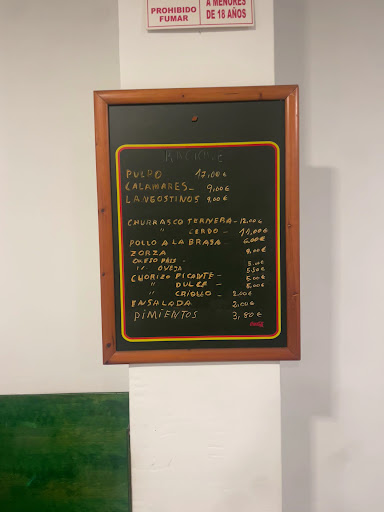 PROHIBIDO A MENORES
FUMAR DE 18 AÑOS
PULPO 12,00€
CALAMARES- 9,00€
LANGOSTINOS 9,00€
CHURRASCO TERNERA-12.00€
" CERDO- 11,00€
POLLO A LA BRASA- 6.00€
ZORZA 8,00€
QUESO PAIS- 5.00€
" OVEJA 5.50€
CHORIZO PICANTE- 5.00€
" DULCE- 5.00€
" CRIOLLO- 2.00€
ENSALADA 2,00€
PIMIENTOS 3,80€